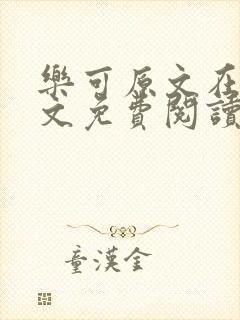 樂可原文在
文免費閱讀
童漢金